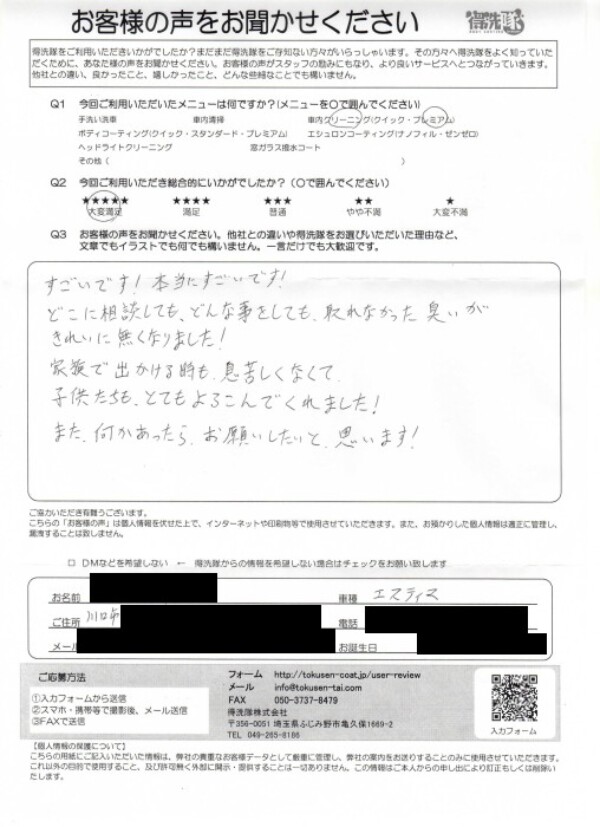 お客様の声をお聞かせください
得洗隊
得洗隊をご利用いただきいかがでしたか?まだまだ得洗隊をご存知ない方々がいらっしゃいます。その方々へ得洗隊をよく知っていた
だくために、あなた様の声をお聞かせください。お客様の声がスタッフの励みにもなり、より良いサービスへとつながっていきます。
他社との違い、良かったこと、嬉しかったこと、どんな些細なことでも構いません。
Q1 今回ご利用いただいたメニューは何ですか?(メニューを○で囲んでください)
手洗い洗車 車内清掃 車内クリーニング(クイック・プレミアム)
ボディコーティング(クイック・スタンダード・プレミアム) エシュロンコーティング(ナノフィル・ゼンゼロ)
ヘッドライトクリーニング 窓ガラス撥水コート
その他( )
Q2 今回ご利用いただき総合的にいかがでしたか?(○で囲んでください)
★★★★★ ★★★★ ★★★ ★★ ★
大変満足 満足 普通 やや不満 大変不満
Q3 お客様の声をお聞かせください。他社との違いや得洗隊をお選びいただいた理由など、
文章でもイラストでも何でも構いません。一言だけでも大歓迎です。
すごいです!本当にすごいです!
どこに相談しても、どんな事をしても、取れなかった臭いが
きれいに無くなりました!
家族で出かける時も、息苦しくなくて、
子供たちも、とてもよろこんでくれました!
また、何かあったら、お願いしたいと、思います!
ご協力いただき有難うございます。
こちらの「お客様の声」は個人情報を伏せた上で、インターネットや印刷物等で使用させていただきます。また、お預かりした個人情報は適正に管理し、
漏洩することは致しません。
□ DMなどを希望しない ← 得洗隊からの情報を希望しない場合はチェックをお願い致します
お名前 車種 エスティマ
ご住所 川口市 電話
メール お誕生日
ご応募方法
①入力フォームから送信
②スマホ・携帯等で撮影後、メール送信
③FAXで送信
フォーム http://tokusen-coat.jp/user-review
メール info@tokusen-tai.com
FAX 050-3737-8479
得洗隊株式会社
〒356-0051 埼玉県ふじみ野市亀久保1669-2
TEL 049-265-8186
入力フォーム
【個人情報の保護について】
こちらの用紙にご記入いただいた情報は、弊社の貴重なお客様データとして厳重に管理し、弊社の案内をお送りすることのみに使用させていただきます。
これ以外の目的で使用すること、及び許可無く外部に開示・提供することは一切ありません。この情報はご本人からの申し出により訂正もしくは削除い
たします。